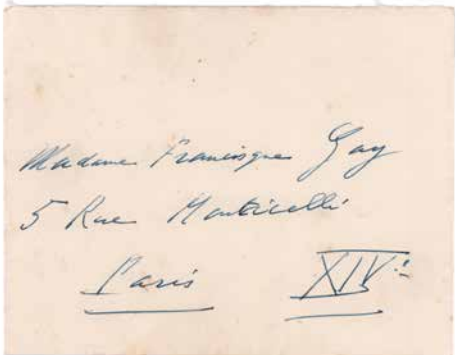 Madame Francisque Gay
5 Rue Monticelli
Paris XIVe